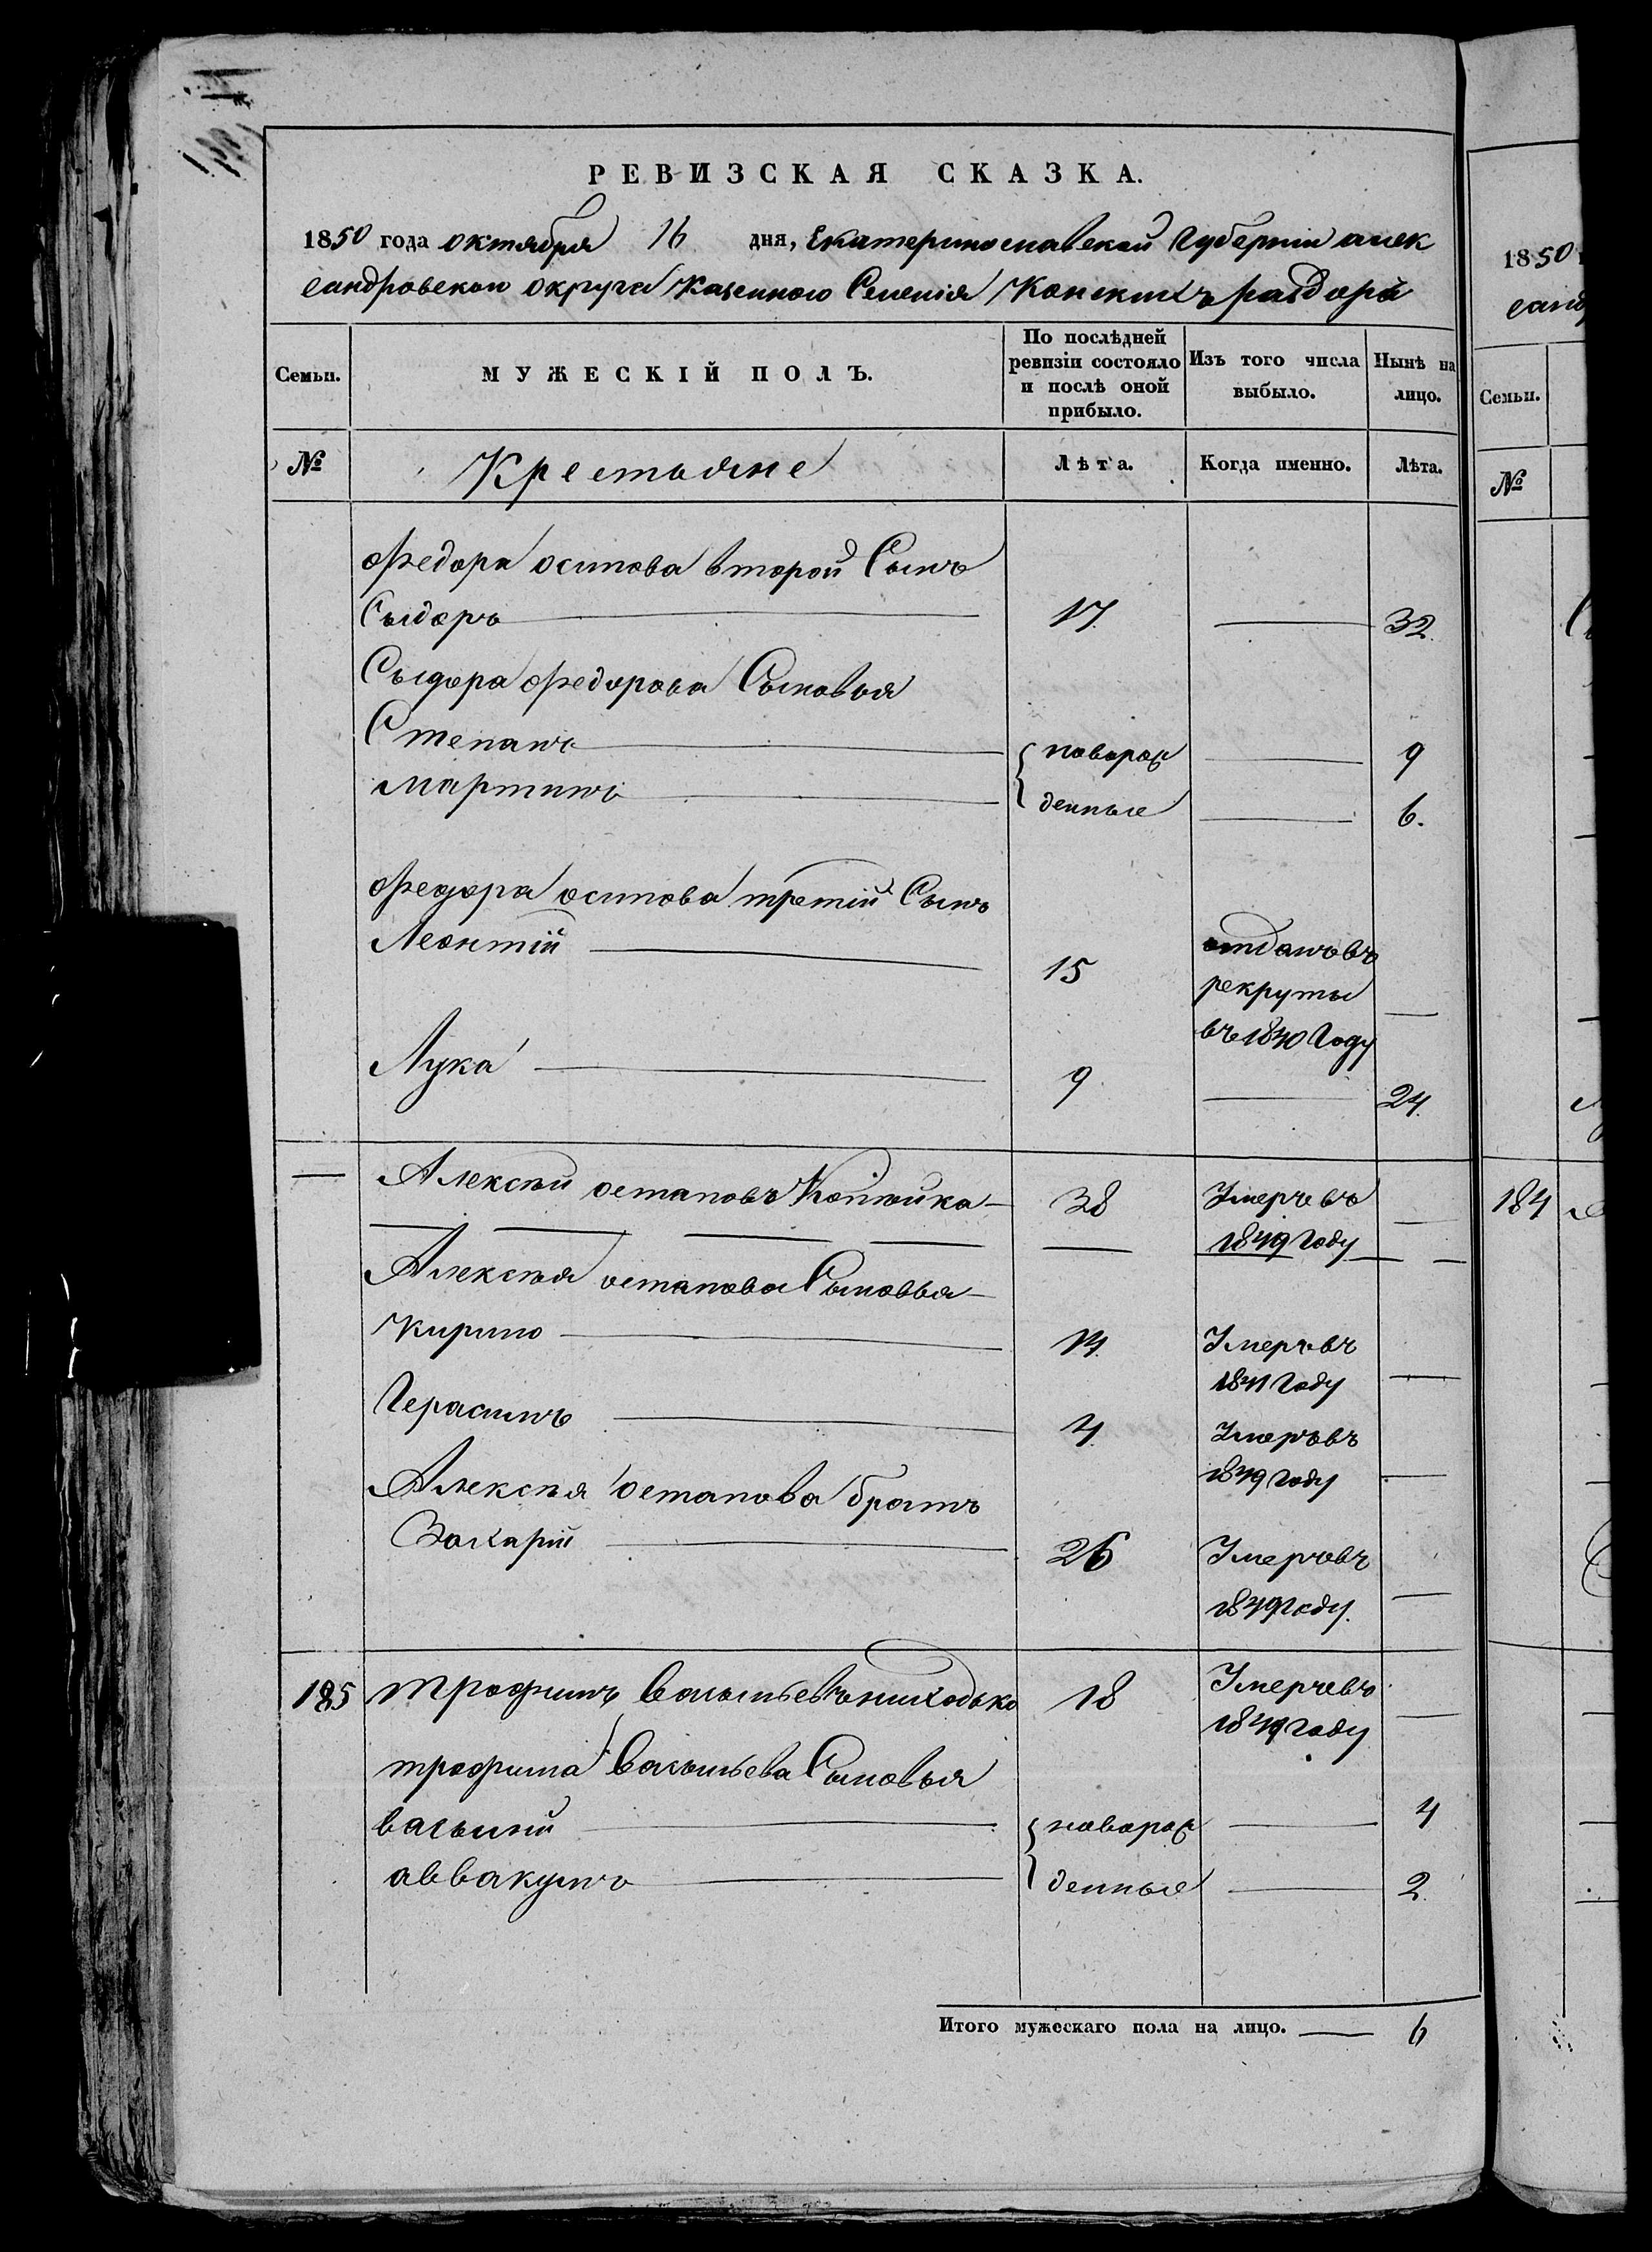 РЕВИЗСКАЯ СКАЗКА.
1850 года октября 16 дня, Екатеринославской Губерніи алек
сандровскаго округа Казенного Селенія Конскихъ раздоръ
Семьи. МУЖЕСКІЙ ПОЛЪ. По послѣдней ревизіи состояло и послѣ оной прибыло. Изъ того числа выбыло. Нынѣ на лицо.
№ Крестьяне Лѣта. Когда именно. Лѣта.
Федора осипова второй Сынъ
Сыдоръ 17 32.
Сыдора Федорова Сыновья
Степанъ новорож 9
мартинъ денные 6.
Федора осипова третій Сынъ
Леонтій 15 отданъ въ
рекруты
въ 1840 Году
Лука 9 24.
Алексѣй остаповъ 38 Умеръ въ
1849 Году
Алексѣя остапова Сыновья
Кирило 14. Умеръ въ
1841 Году
Герасимъ 4. Умеръ въ
1849 Году
Алексѣя остапова братъ
Захарій 26 Умеръ въ
1849 Году.
185 трофимъ васильевъ 18 Умеръ въ
1849 Году
трофима васильева Сыновья
василий новорож 4
аввакумъ денные 2.
Итого мужескаго пола на лицо. 6
1850
санд
Семьи.
№
184